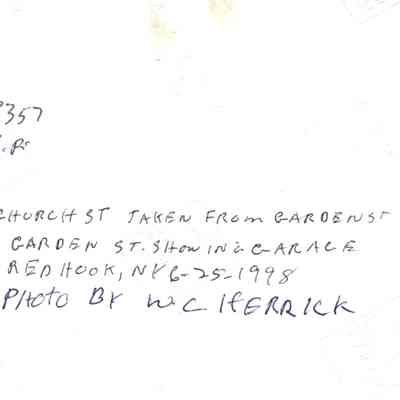 357
CHURCH ST TAKEN FROM GARDEN ST
GARDEN ST. SHOWING GARAGE
RED HOOK, NY 6-25-1998
PHOTO BY W C HERRICK